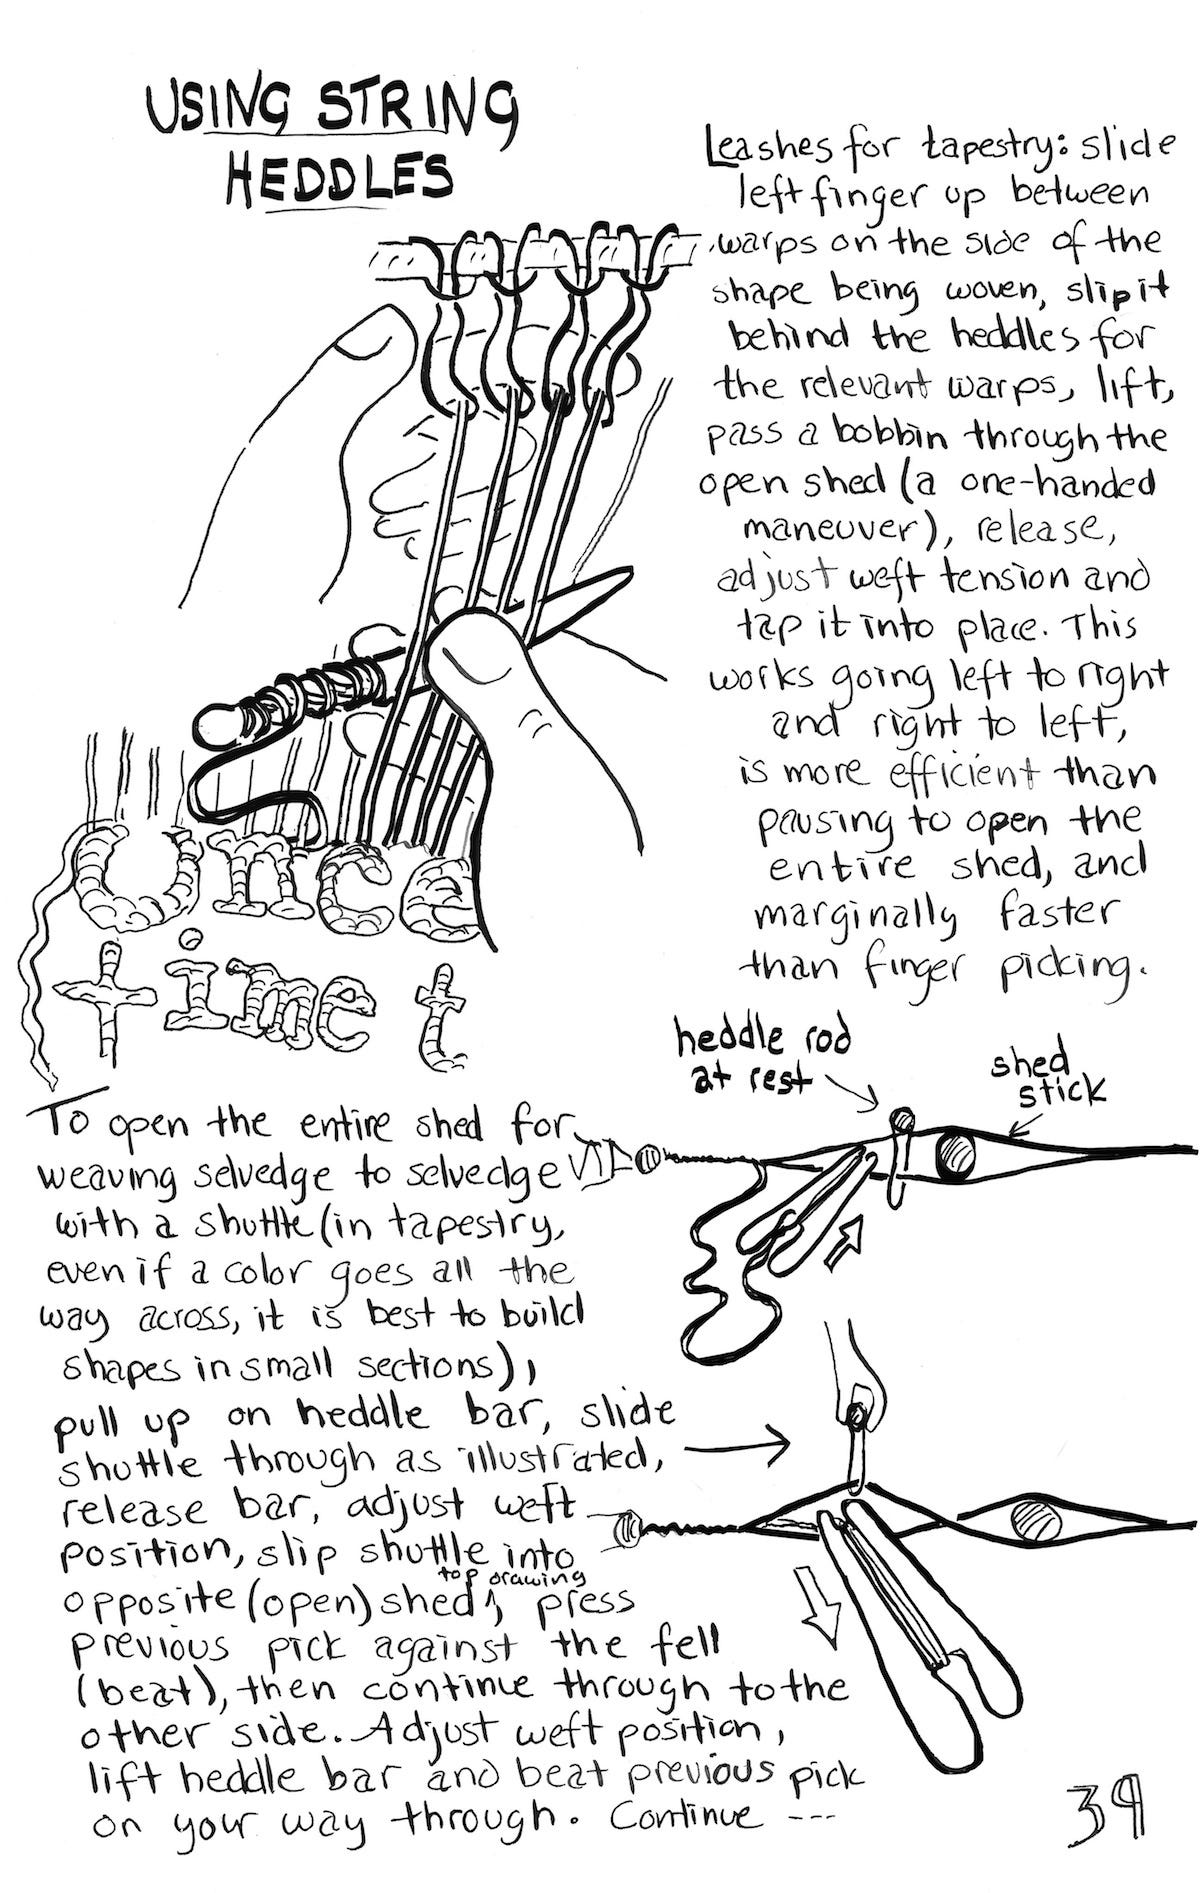 USING STRING
HEDDLES
Leashes for tapestry: slide
left finger up between
warps on the side of the
shape being woven, slip it
behind the heddles for
the relevant warps, lift,
pass a bobbin through the
open shed (a one-handed
maneuver), release,
adjust weft tension and
tap it into place. This
works going left to right
and right to left,
is more efficient than
pausing to open the
entire shed, and
marginally faster
than finger picking.
Once
time t
heddle rod
at rest
shed
stick
To open the entire shed for
weaving selvedge to selvedge
with a shuttle (in tapestry,
even if a color goes all the
way across, it is best to build
shapes in small sections),
pull up on heddle bar, slide
shuttle through as illustrated,
release bar, adjust weft
position, slip shuttle into
top drawing
opposite (open) shed, press
previous pick against the fell
(beat), then continue through to the
other side. Adjust weft position,
lift heddle bar and beat previous pick
on your way through. Continue ---
39